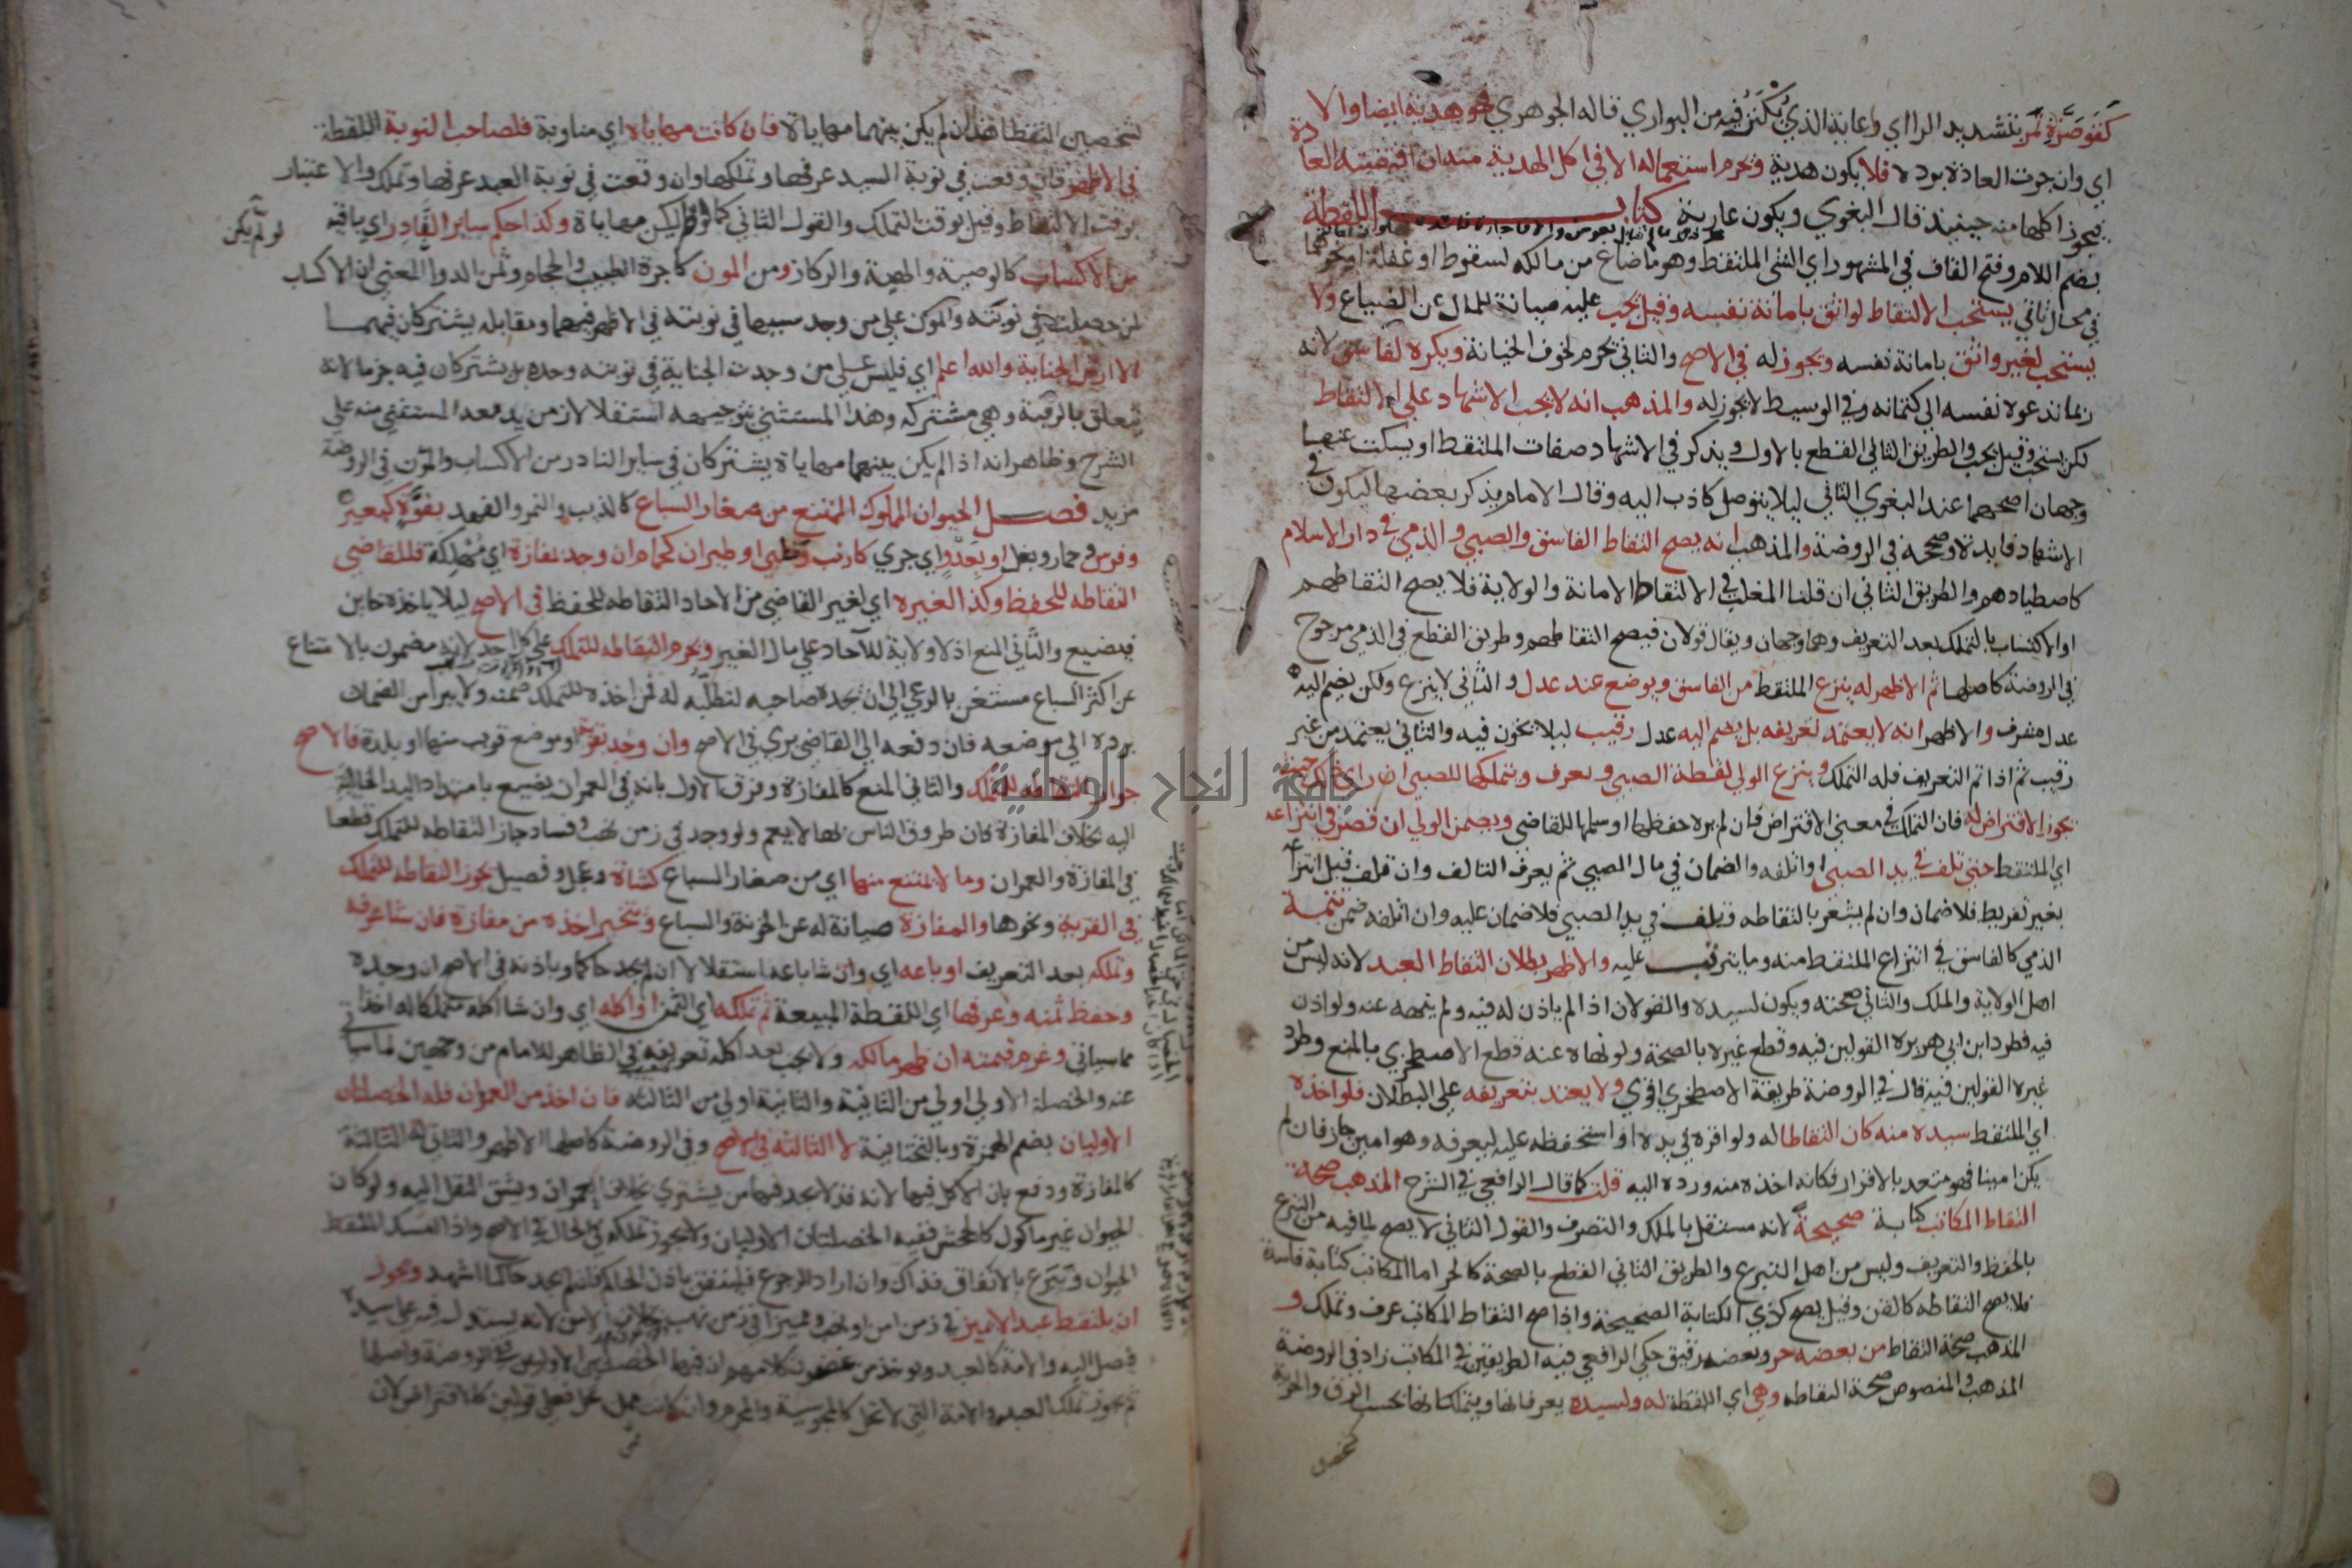 كقوصرة تمر بتشديد الرا اي وعابة الذي يكنز فيه من البواري قاله الجوهري فهو هدية ايضا والا
اي وان جرت العادة برده فلا يكون هدية ويحرم استعماله الا في اكل الهدية منه ان اقتضته العادة
فيجوز اكلها منه حينيذ قال البغوي ويكون عارية كتاب اللقطة
بضم اللام وفتح القاف في المشهور اي الشي الملتقط وهو ما ضاع من مالكه لسقوط او غفلة او نحوهما
في محال تاتي يستحب الالتقاط لواثق بامانة نفسه وقيل يجب عليه صيانة للمال عن الضياع ولا
يستحب لغير واثق بامانة نفسه ويجوز له في الاصح والثاني يحرم لخوف الخيانة ويكره لفاسق لانه
ربما تدعوه نفسه الى كتمانه وفي الوسيط لا يجوز له والمذهب انه لا يجب الاشهاد على الالتقاط
لكن يستحب وقيل يجب والطريق الثاني القطع بالاول ويذكر في الاشهاد صفات الملتقط او يسكت عنها
وجهان اصحهما عند البغوي الثاني ليلا يتوصل كاذب اليه وقال الامام يذكر بعضها ليكون في
الاشهاد فايدة وصححه في الروضة والمذهب انه يصح التقاط الفاسق والصبي والذمي في دار الاسلام
كاصطيادهم والطريق الثاني ان قلنا المغلب في الالتقاط الامانة والولاية فلا يصح التقاطهم
او الاكتساب بالتملك بعد التعريف وهما وجهان ويقال قولان فيصح التقاطهم وطريق القطع في الذمي مرجوح
في الروضة كاصلها ثم الاظهر انه ينزع الملتقط من الفاسق ويوضع عند عدل والثاني لا ينزع ولكن يضم اليه
عدل مشرف والاظهر انه لا يعتمد تعريفه بل يضم اليه عدل رقيب ليلا يخون فيه والثاني يعتمد من غير
رقيب ثم اذا تم التعريف فله التملك وينزع الولي لقطة الصبي ويعرف ويتملكها للصبي ان راى ذلك حيث
يجوز الاقتراض له فان التملك في معنى الاقتراض فان لم يره حفظها او سلمها للقاضي ويضمن الولي ان قصر في انتزاعه
اي الملتقط حتى تلف في يد الصبي او اتلفه والضمان في مال الصبي ثم يعرف التالف وان تلف قبل انتزاعه
بغير تفريط فلا ضمان وان لم يشعر بالتقاطه فتلف في يد الصبي فلا ضمان عليه وان اتلفه ضمن تتمة
الذمي كالفاسق في انتزاع الملتقط منه وما يترتب عليه والاظهر بطلان التقاط العبد لانه ليس من
اهل الولاية والملك والثاني صحته ويكون لسيده والقولان اذا لم ياذن له فيه ولم ينهه عنه ولو اذن
فيه فطرد ابن ابي هريرة القولين فيه وقطع غيره بالصحة ولو نهاه عنه قطع الاصطخري بالمنع وطرد
غيره القولين فيه قال في الروضة طريقة الاصطخري اقوى ولا يعتد بتعريفه على البطلان فلو اخذه
اي الملتقط سيده منه كان التقاطا له ولو اقره في يده او استحفظه عليه ليعرفه وهو امين جاز فان لم
يكن امينا فهو متعد بالاقرار فكانه اخذه منه ورده اليه قلت كما قال الرافعي في الشرح المذهب صحة
التقاط المكاتب كتابة صحيحة لانه مستقل بالملك والتصرف والقول الثاني لا يصح لما فيه من التبرع
بالحفظ والتعريف وليس من اهل التبرع والطريق الثاني القطع بالصحة كالحر اما المكاتب كتابة فاسدة
فلا يصح التقاطه كالقن وقيل يصح كذي الكتابة الصحيحة واذا صح التقاط المكاتب عرف وتملك و
المذهب صحة التقاط من بعضه حر وبعضه رقيق حكى الرافعي فيه الطريقين في المكاتب زاد في الروضة
المذهب والمنصوص صحة التقاطه وهي اي اللقطة له ولسيده يعرفانها ويتملكانها بحسب الرق والحرية
كشخصين
لشخصين التقطا هذا ان لم يكن بينهما مهاياة فان كانت مهاياة اي مناوبة فلصاحب النوبة اللقطة
في الاظهر فان وقعت في نوبة السيد عرفها وتملكها وان وقعت في نوبة العبد عرفها وتملك والاعتبار
بوقت الالتقاط وقيل بوقت التملك والقول الثاني كما لو لم يكن مهاياة وكذا حكم ساير النادر اي باقيه
لو لم يكن
من الاكساب كالوصية والهبة والركاز ومن المون كاجرة الطبيب والحجام وثمن الدوا المعنى ان الاكساب
لمن حصلت في نوبته والمون على من وجد سببها في نوبته في الاظهر فيهما ومقابله يشتركان فيهما
الا ارش الجناية والله اعلم اي فليس على من وجدت الجناية في نوبته وحده بل يشتركان فيه جزما لانه
يتعلق بالرقبة وهي مشتركة وهذا المستثنى بتوجيهه استقلالا من يد بعد المستثنى منه على
الشرح وظاهر انه اذا لم يكن بينهما مهاياة يشتركان في ساير النادر من الاكساب والمون في الروضة
مزيد فصل الحيوان المملوك الممتنع من صغار السباع كالذيب والنمر والفهد بقوة كبعير
وفرس وحمار وبغل او بعدو اي جري كارنب وظبي او طيران كحمام ان وجد بمفازة اي مهلكة فللقاضي
التقاطه للحفظ وكذا لغيره اي لغير القاضي من الاحاد التقاطه للحفظ في الاصح ليلا ياخذه خاين
فيضيع والثاني المنع اذ لا ولاية للآحاد على مال الغير ويحرم التقاطه للتملك على كل احد لانه مصون بالامتناع
عن اكثر السباع مستغن بالرعي الى ان يجده صاحبه لتطلبه له فمن اخذه للتملك ضمنه ولا يبرا من الضمان
برده الى موضعه فان دفعه الى القاضي بري في الاصح وان وجد بقرية او موضع قريب منها او بلدة فالاصح
جواز التقاطه للتملك والثاني المنع كالمفازة وفرق الاول بانه في العمران يضيع بامتداد اليد الخاينة
اليه بخلاف المفازة فان طروق الناس بها لا يعم ولو وجد في زمن نهب وفساد جاز التقاطه للتملك قطعا
في المفازة والعمران وما لا يمتنع منها اي من صغار السباع كشاة وعجل وفصيل يجوز التقاطه للتملك
في القرية ونحوها والمفازة صيانة له عن الخونة والسباع ويتخير اخذه من مفازة فان شا عرفه
وتملكه بعد التعريف او باعه اي وان شا باعه استقلالا ان لم يجد حاكما وباذنه في الاصح ان وجده
وحفظ ثمنه وعرفها اي اللقطة المبيعة ثم تملكه اي الثمن او اكله اي وان شا اكله متملكا له اخذا
مما سياتي وغرم قيمته ان ظهر مالكه ولا يجب بعد اكله تعريفه في الظاهر للامام من وجهين لما سياتي
عنه والخصلة الاولى اولى من الثانية والثانية اولى من الثالثة فان اخذ من العمران فله الخصلتان
الاوليان بضم الهمزة وبالتحتانية لا الثالثة في الاصح وفي الروضة كاصلها الاظهر والثاني له الثالثة
كالمفازة ودفع بان الاكل فيها لانه قد لا يجد فيها من يشتري بخلاف العمران ويشق النقل اليه ولو كان
الحيوان غير ماكول كالجحش ففيه الخصلتان الاوليان ولا يجوز تملكه في الحال في الاصح واذا امسك الملتقط
الحيوان وتبرع بالانفاق فذاك وان اراد الرجوع فلينفق باذن الحاكم فان لم يجد حاكما اشهد ويجوز
ان يلتقط عبدا لا يميز في زمن امن او نهب ومميزا في زمن نهب بخلاف الامن لانه يستدل فيه على سيده
فيصل اليه والامة كالعبد
ثم يجوز تملك العبد والامة التي لا تحل كالمجوسية والمحرم وان كانت ممن تحل فعلى قولين كاقتراض لان